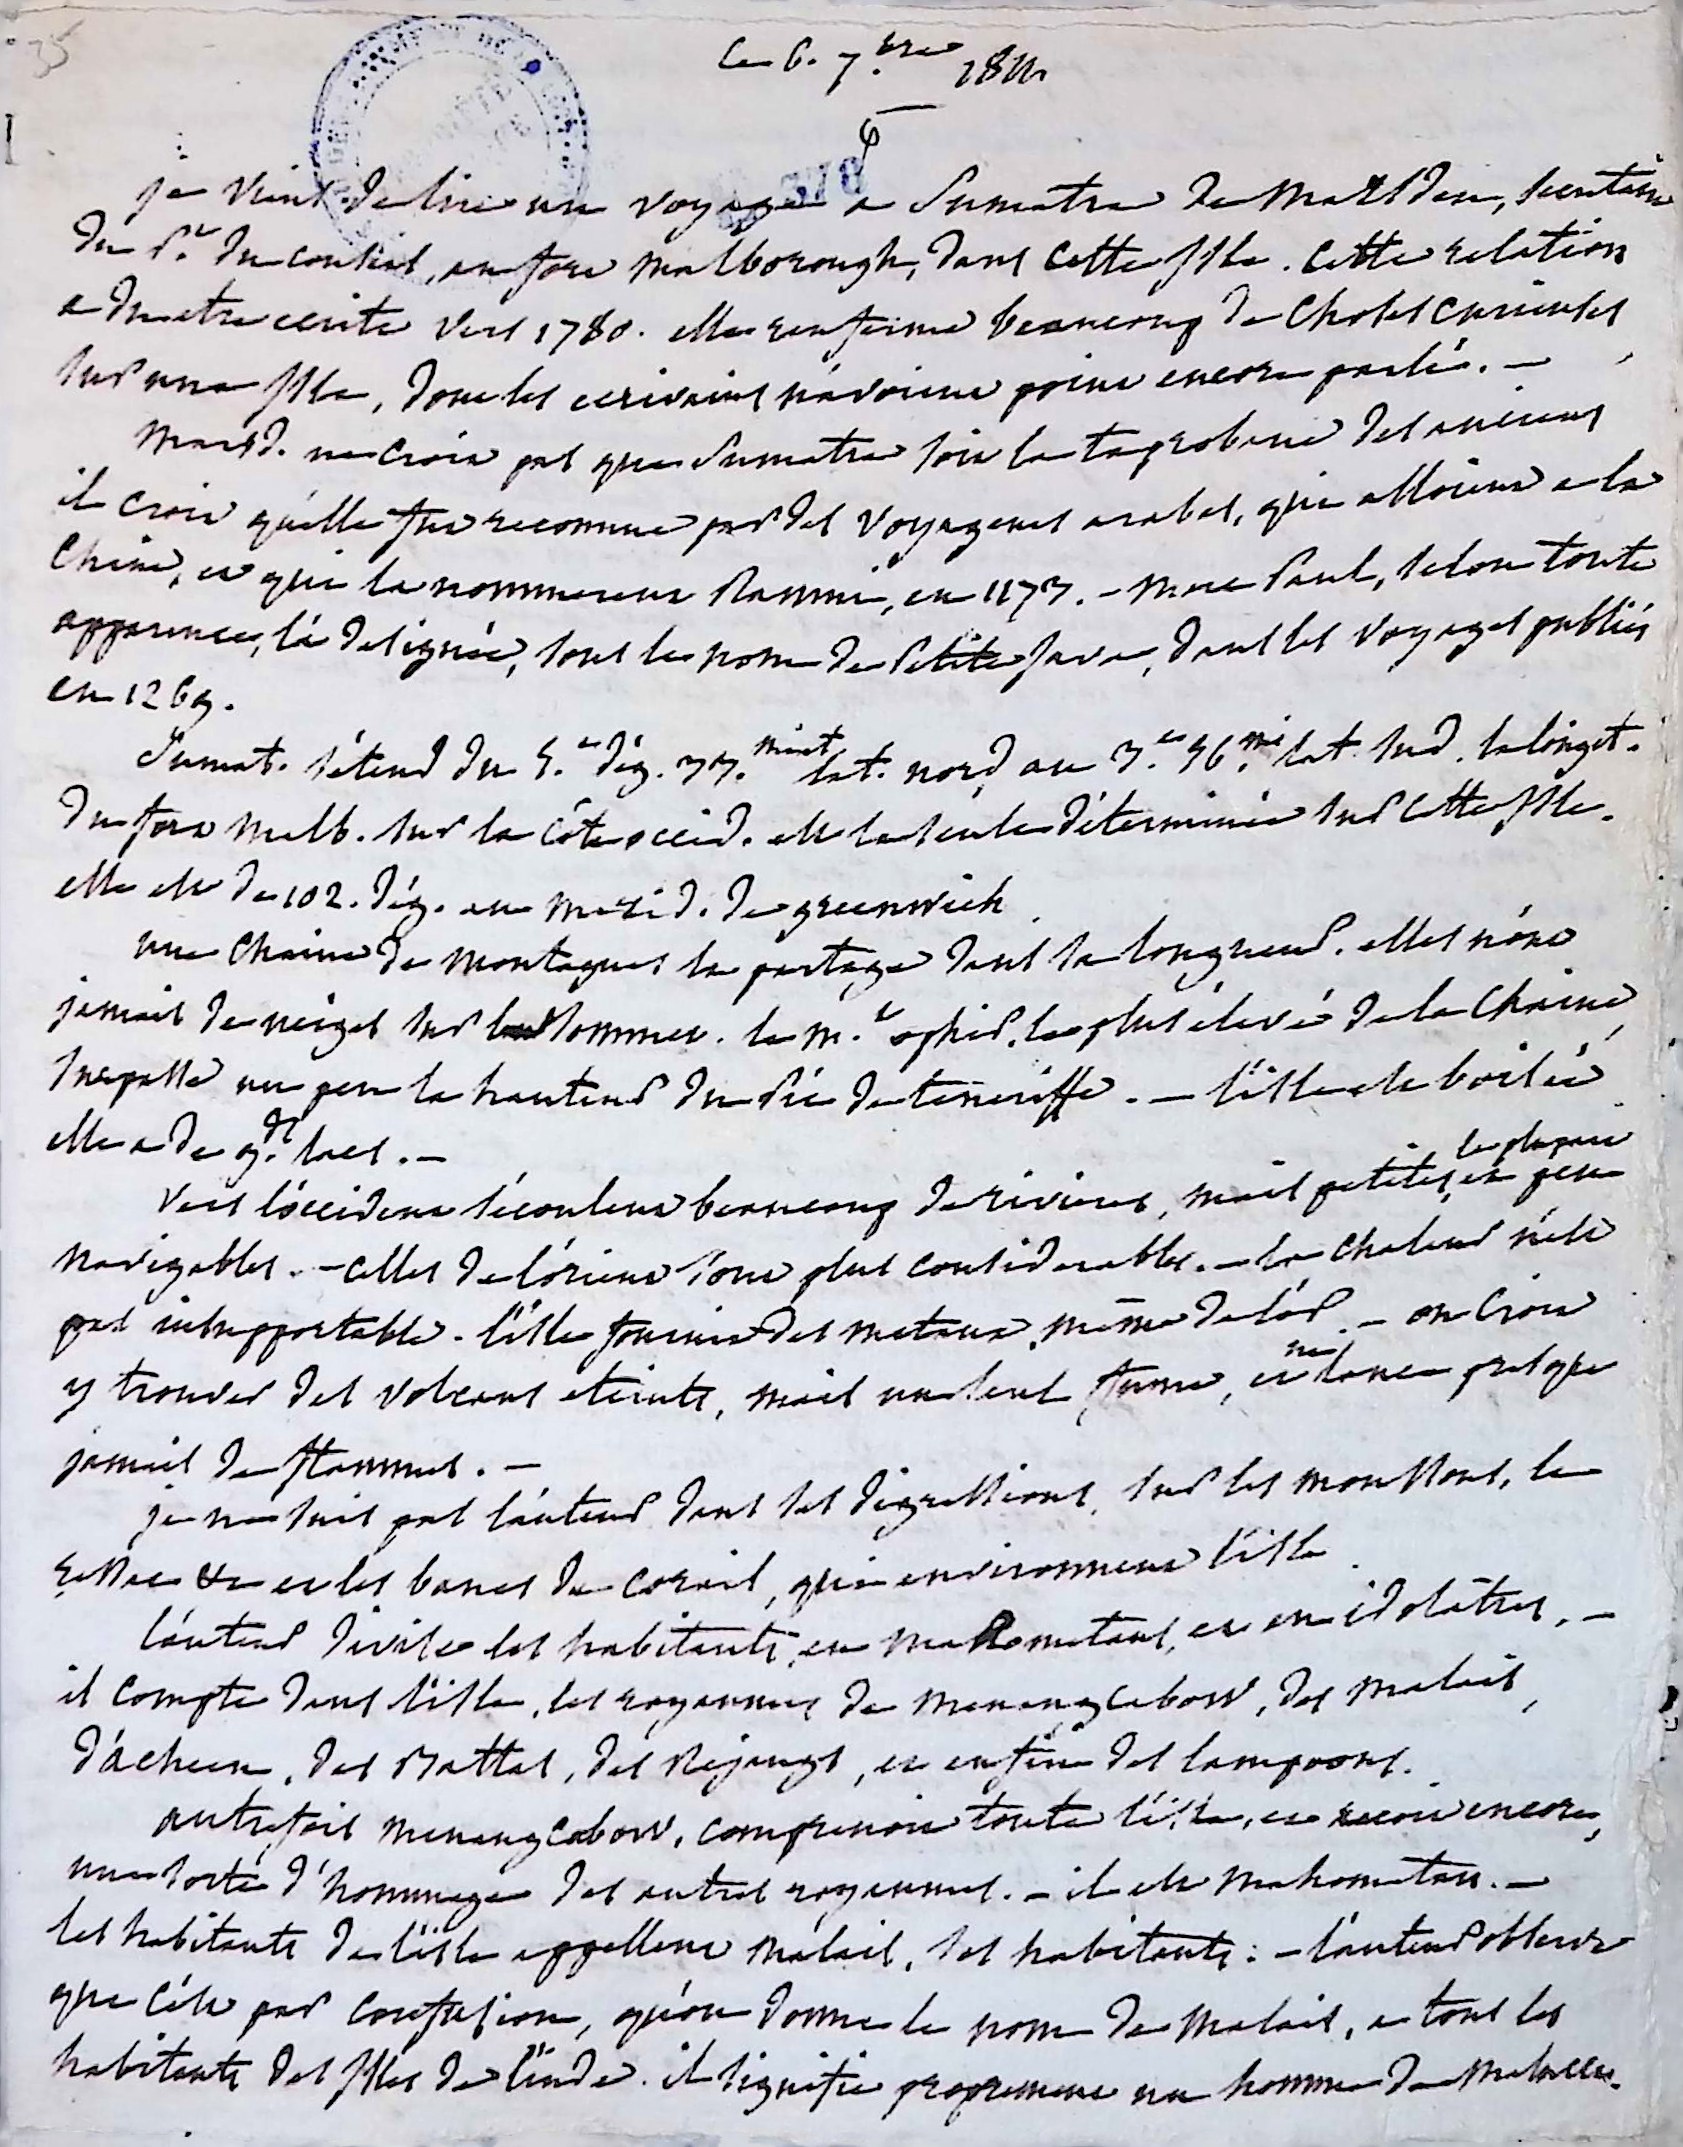 35
Le 6. 7.bre 1811.
6
378
je viens de lire un voyage a Sumatra de Marsden, secretaire
du Pt. du conseil, au fort Malborough, dans cette Isle. cette relation
a du etre ecrite vers 1780. elle renferme beaucoup de choses curieuses,
sur une Isle, dont les ecrivains n'avoient point encore parlé. —
Marsd. ne croit pas que Sumatra soit la taprobane des anciens
il croit qu'elle fut reconnue par des voyageurs arabes, qui alloient a la
Chine, et qui la nommerent Ramni, en 1173. — Marc Paul, selon toute
apparence, l'a designée, sous le nom de Petite Java, dans les voyages publiés
en 1269.
Sumat. s'étend du 5.e dég. 33. mint lat. nord au 3.e 56. mi lat. sud. la longit.
du fort Malb. sur la côte occid. est la seule déterminée sur cette Isle.
elle est de 102. dég. au mérid. de greenwich
une chaine de montagnes la partage dans sa longueur. elles n'ont
jamais de neiges sur leur sommet. le m.t ophir, le plus élevé de la chaine,
surpasse un peu la hauteur du Pic de teneriffe. — l'isle est boisée
elle a de g.ds lacs. —
Vers l'occident s'écoulent beaucoup de rivieres, mais petites, et peu la plupart
navigables. — celles de l'orient sont plus considerables. — la chaleur n'est
pas insupportable. l'isle fournit des metaux, même de l'or. — on croit
y trouver des volcans eteints, mais un seul fume, et ne lance presque
jamais de flammes. —
je ne suis pas l'auteur dans ses digressions, sur les moussons, le
ressac &c et les bancs de corail, qui environnent l'isle.
l'auteur divise les habitants, en Mahometans, et en idolâtres. —
il compte dans l'isle, les royaumes de Menangcabow, des Malais,
d'acheen, des Battas, des Rejangs, et enfin des lampoons.
autrefois Menangcabow, comprenoit toute l'isle, et reçoit encore,
une sorte d'hommage des autres royaumes. — il est Mahometan. —
les habitants de l'isle appellent Malais, ses habitants: — l'auteur observe
que c'est par confusion, qu'on donne le nom de Malais, a tous les
habitants des Isles de l'inde. il signifie proprement un homme de Malacca.